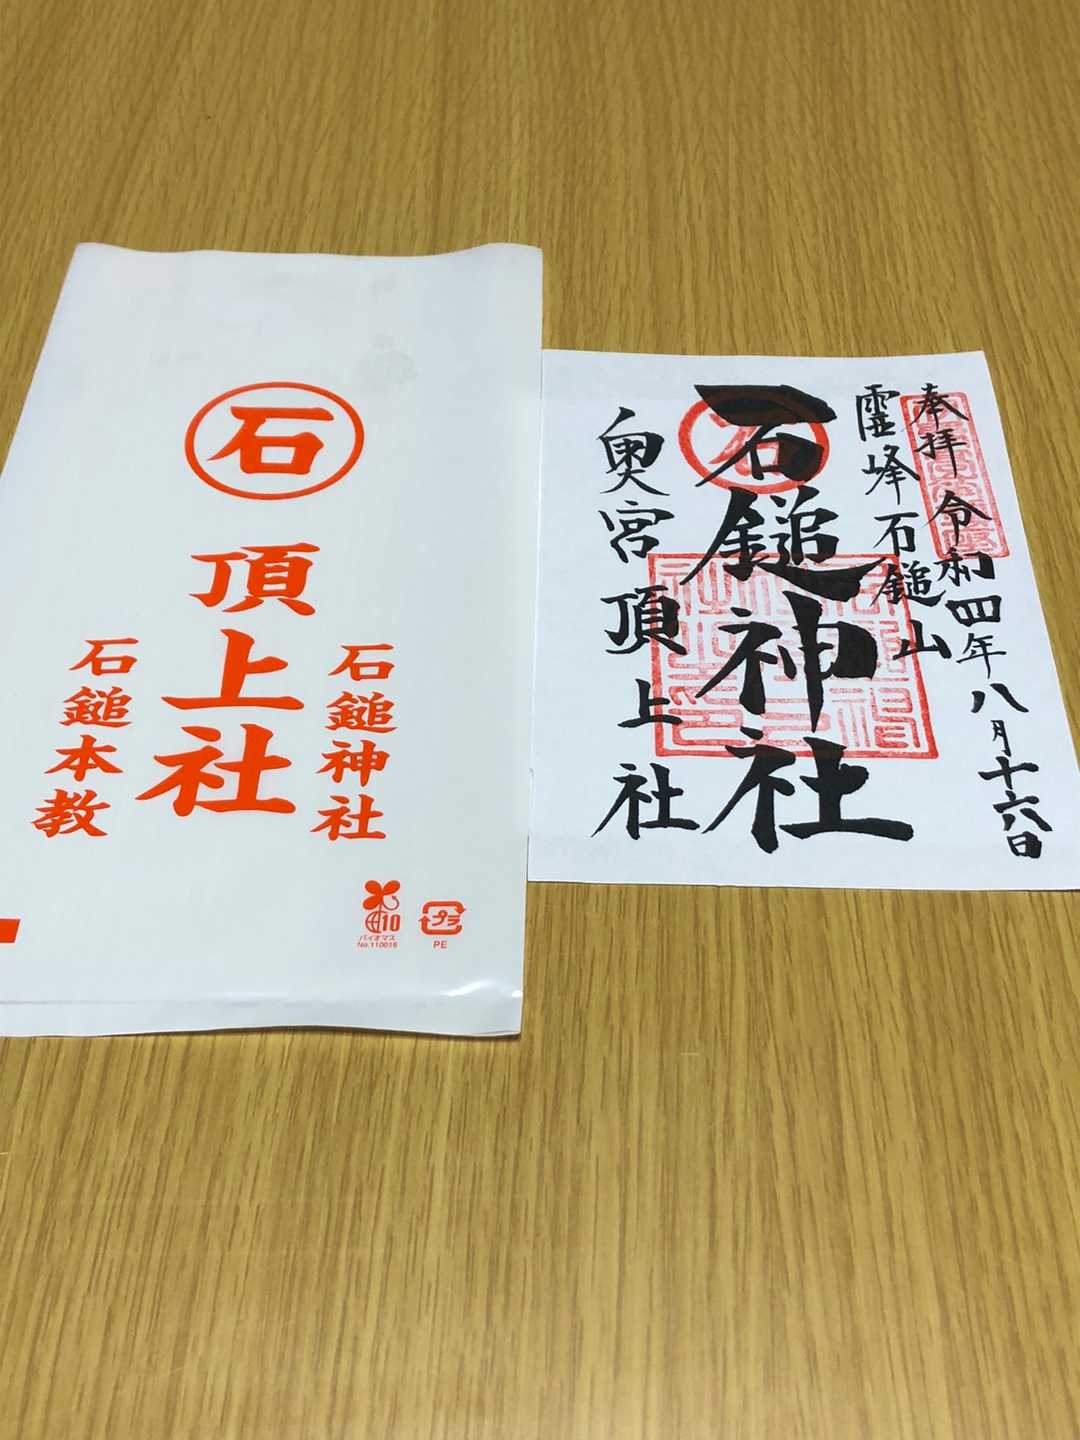 石
頂上社
石鎚神社
石鎚本教
10
バイオマス
No.110016
プラ
PE
奉拝 令和四年八月十六日
霊峰石鎚山
石
石鎚神社
奥宮頂上社